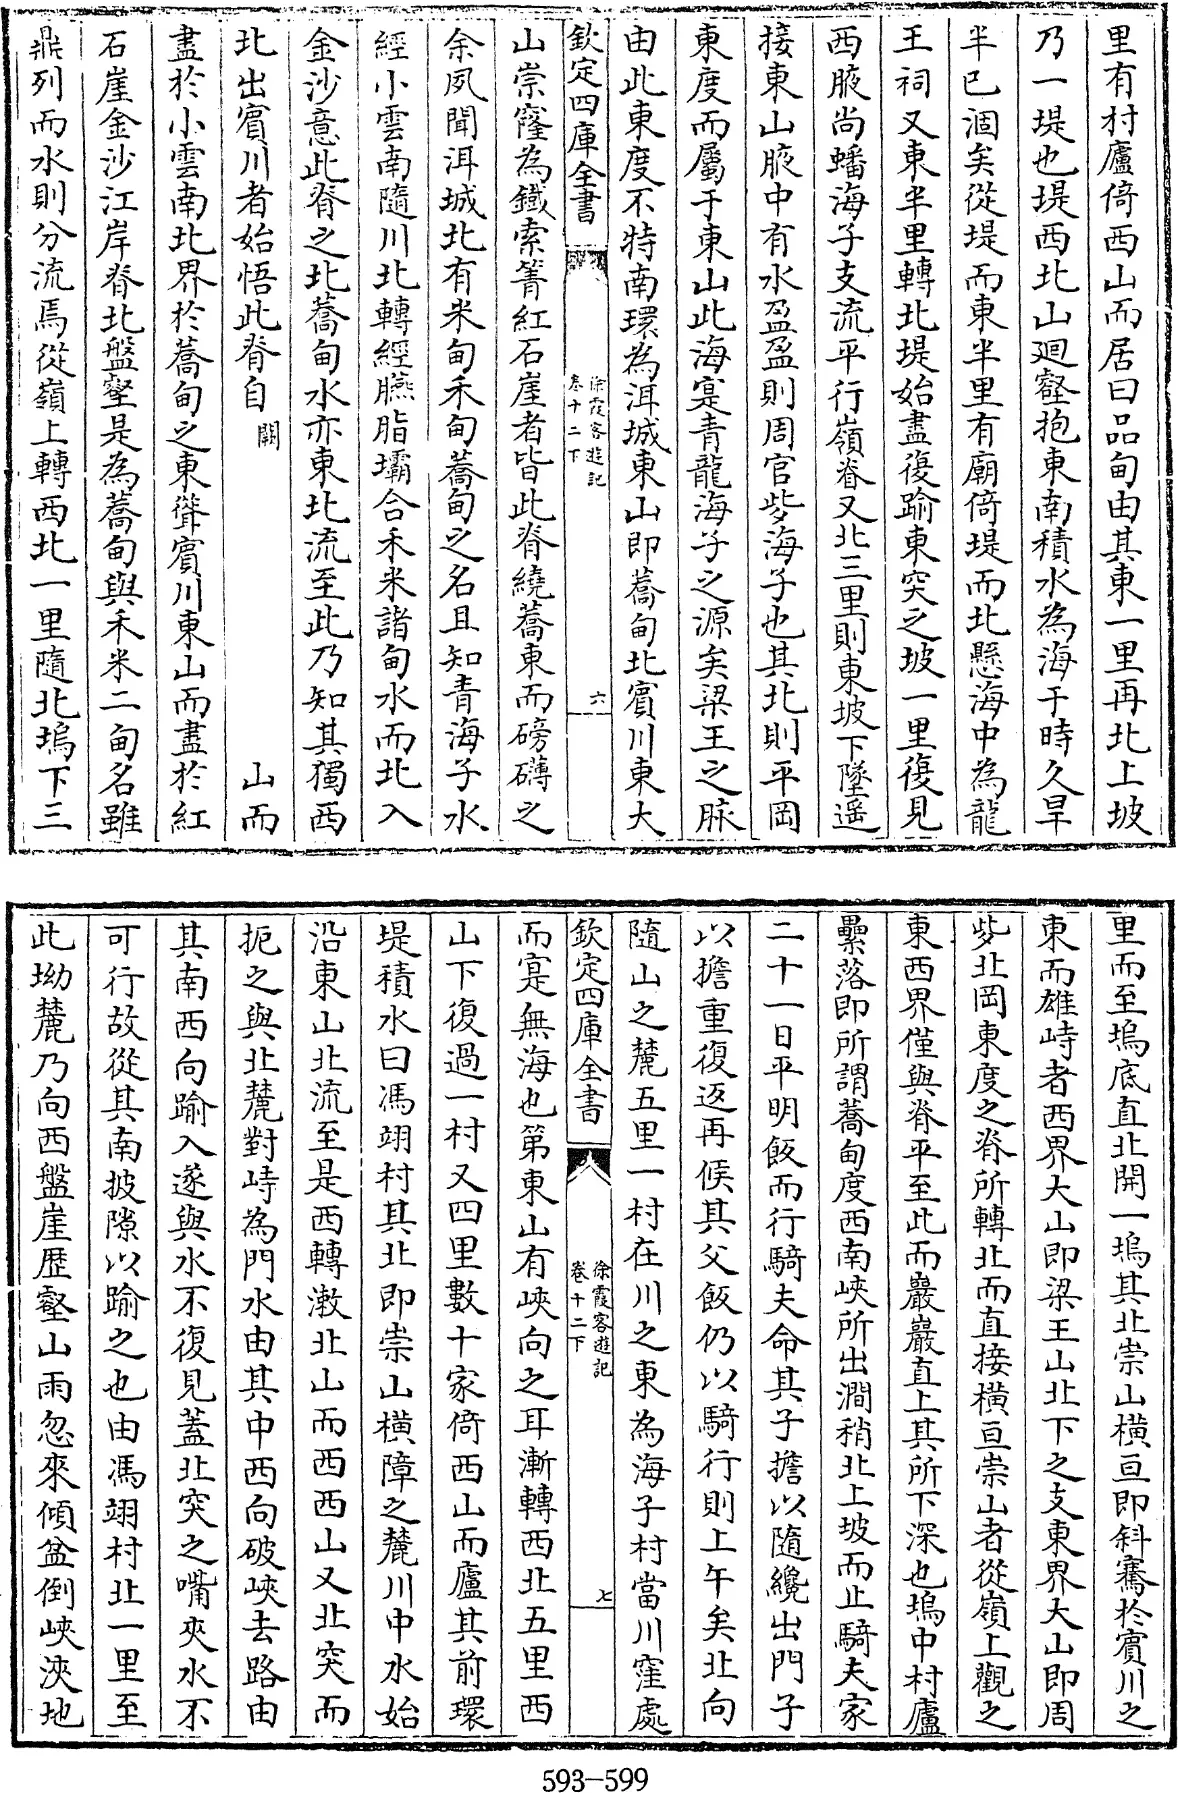 里有村廬倚西山而居曰品甸由其東一里再北上坡
乃一堤也堤西北山廻壑抱東南積水為海于時久旱
半已涸矣從堤而東半里有廟倚堤而北懸海中為龍
王祠又東半里轉北堤始盡復踰東突之坡一里復見
西腋尚蟠海子支流平行嶺脊又北三里則東坡下墜遥
接東山腋中有水盈盈則周官㱔海子也其北則平岡
東度而屬于東山此海寔青龍海子之源矣梁王之脉
由此東度不特南環為洱城東山即蕎甸北賓川東大
欽定四庫全書
徐霞客遊記
卷十二下
六
山崇窿為鐵索箐紅石崖者皆此脊繞蕎東而磅礴之
余夙聞洱城北有米甸禾甸蕎甸之名且知青海子水
經小雲南隨川北轉經臙脂壩合禾米諸甸水而北入
金沙意此脊之北蕎甸水亦東北流至此乃知其獨西
北出賓川者始悟此脊自 闕 山而
盡於小雲南北界於蕎甸之東聳賓川東山而盡於紅
石崖金沙江岸脊北盤壑是為蕎甸與禾米二甸名雖
鼎列而水則分流焉從嶺上轉西北一里隨北塢下三
里而至塢底直北開一塢其北崇山橫亘即斜騫於賓川之
東而雄峙者西界大山即梁王山北下之支東界大山即周
㱔北岡東度之脊所轉北而直接橫亘崇山者從嶺上觀之
東西界僅與脊平至此而巖巖直上其所下深也塢中村廬
纍落即所謂蕎甸度西南峽所出澗稍北上坡而止騎夫家
二十一日平明飯而行騎夫命其子擔以隨纔出門子
以擔重復返再候其父飯仍以騎行則上午矣北向
隨山之麓五里一村在川之東為海子村當川窪處
欽定四庫全書
徐霞客遊記
卷十二下
七
而寔無海也第東山有峽向之耳漸轉西北五里西
山下復過一村又四里數十家倚西山而廬其前環
堤積水曰馮翊村其北即崇山橫障之麓川中水始
沿東山北流至是西轉漱北山而西西山又北突而
扼之與北麓對峙為門水由其中西向破峽去路由
其南西向踰入遂與水不復見蓋北突之嘴夾水不
可行故從其南披隙以踰之也由馮翊村北一里至
此坳麓乃向西盤崖歷壑山雨忽來傾盆倒峽浹地
593-599